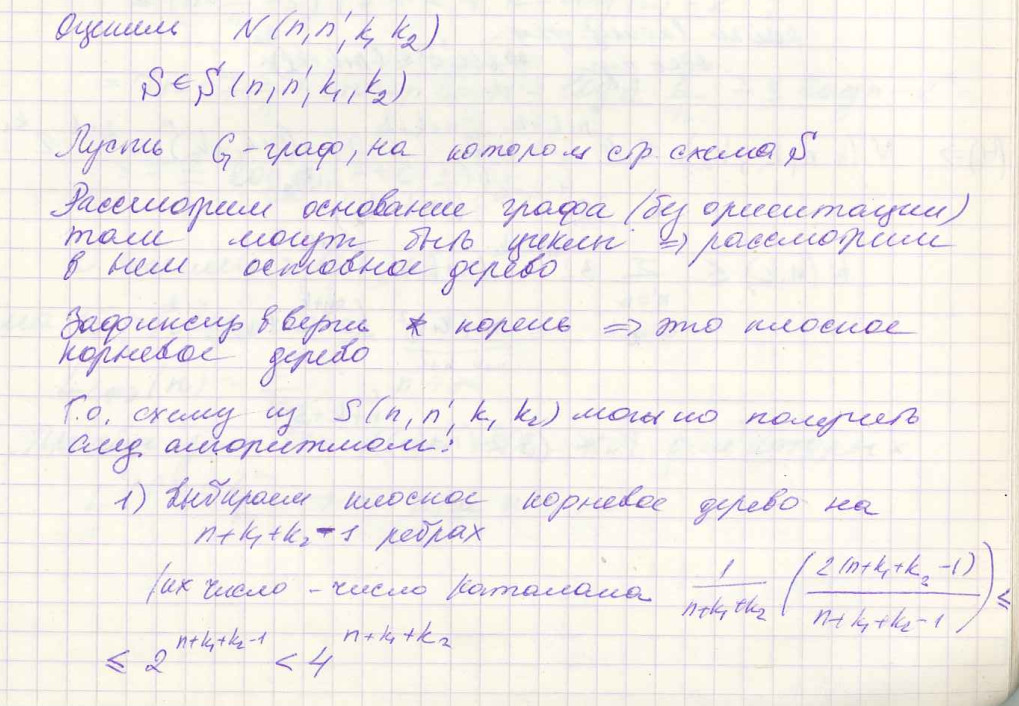 Оценим N(n, n', k₁ k₂)
S ∈ S(n, n', k₁, k₂)
Пусть G – граф, на котором стр. схема S
Рассмотрим основание графа (без ориентации)
там могут быть циклы ⇒ рассмотрим
в нем остовное дерево
Зафиксир в верш * корень ⇒ это плоское
корневое дерево
Т.о. схему из S(n, n', k₁, k₂) можно получить
след. алгоритмом:
1) Выбираем плоское корневое дерево на
n+k₁+k₂-1 ребрах
(их число – число Каталана 1/(n+k₁+k₂) (2(n+k₁+k₂-1) / n+k₁+k₂-1) ≤
≤ 2^(n+k₁+k₂-1) < 4^(n+k₁+k₂)